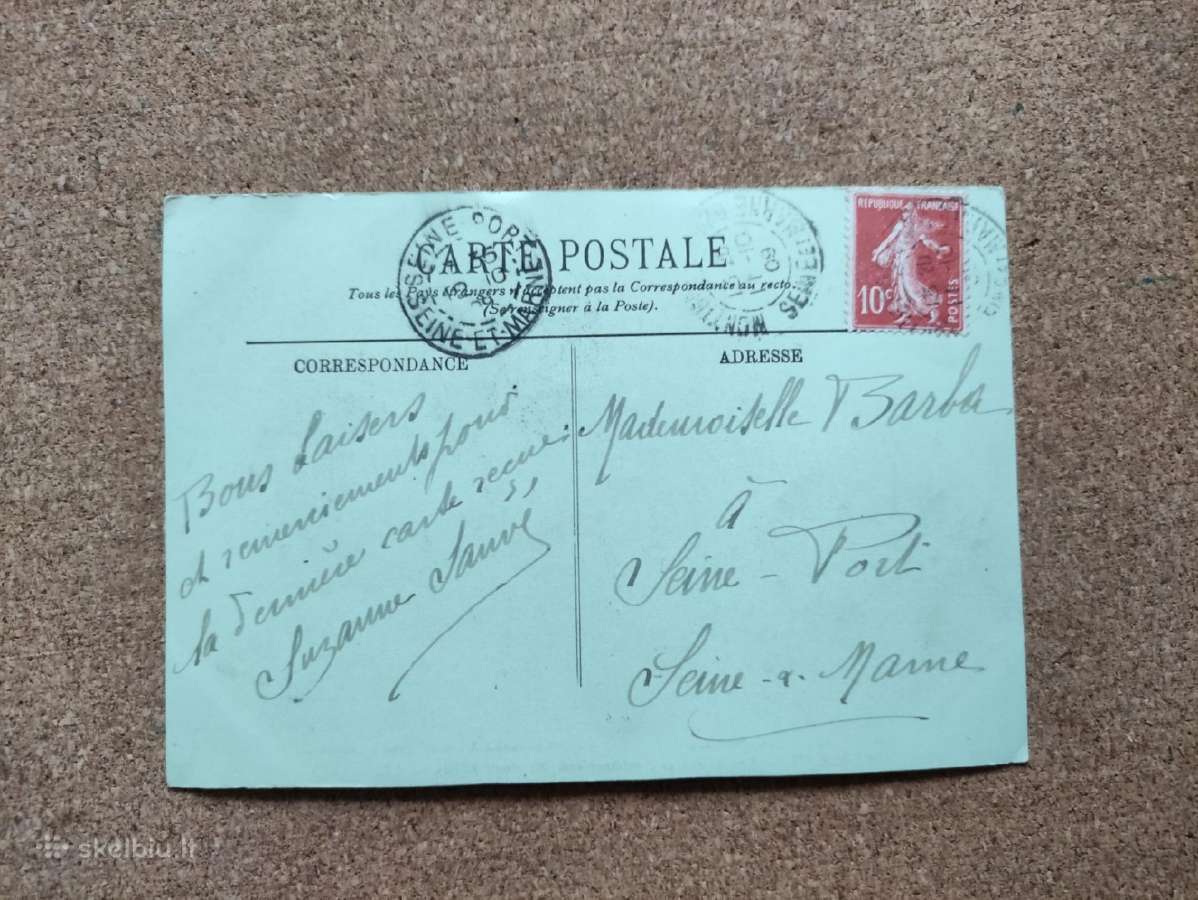 CARTE POSTALE
Tous les Pays étrangers n'acceptent pas la Correspondance au recto.
(Se renseigner à la Poste).
SEINE PORT
SEINE-ET-MARNE
REPUBLIQUE FRANÇAISE
10c
POSTES
CORRESPONDANCE
Bons baisers
et remerciements pour
la dernière carte reçue
Suzanne Sauvé
ADRESSE
Mademoiselle Barba
à
Seine-Port
Seine-&-Marne
skelbiu.lt